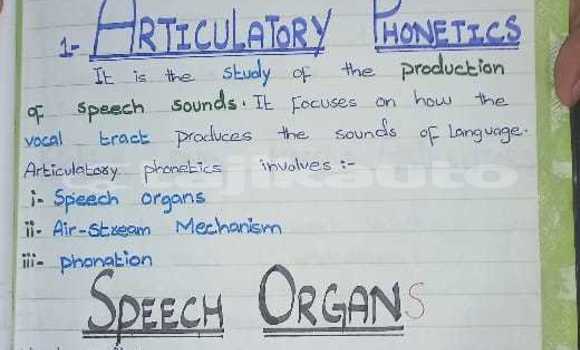 1- ARTICULATORY PHONETICS
It is the study of the production
of speech sounds. It focuses on how the
vocal tract produces the sounds of language.
Articulatory phonetics involves :-
i- Speech organs
ii- Air-Stream Mechanism
iii- phonation
SPEECH ORGANS